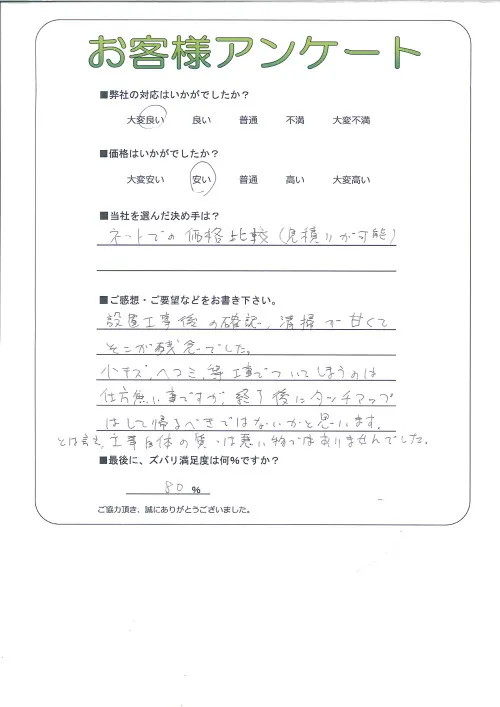 お客様アンケート
■弊社の対応はいかがでしたか？
大変良い 良い 普通 不満 大変不満
■価格はいかがでしたか？
大変安い 安い 普通 高い 大変高い
■当社を選んだ決め手は？
ネットでの価格比較(見積りが可能)
■ご感想・ご要望などをお書き下さい。
設置工事後の確認、清掃が甘くて
そこが残念でした。
小キズ、ヘコミ、等工事でついてしまうのは
仕方無い事ですが、終了後にタッチアップ
はして帰るべきではないかと思います。
とは言え、工事自体の質は悪い物ではありませんでした。
■最後に、ズバリ満足度は何％ですか？
80 ％
ご協力頂き、誠にありがとうございました。